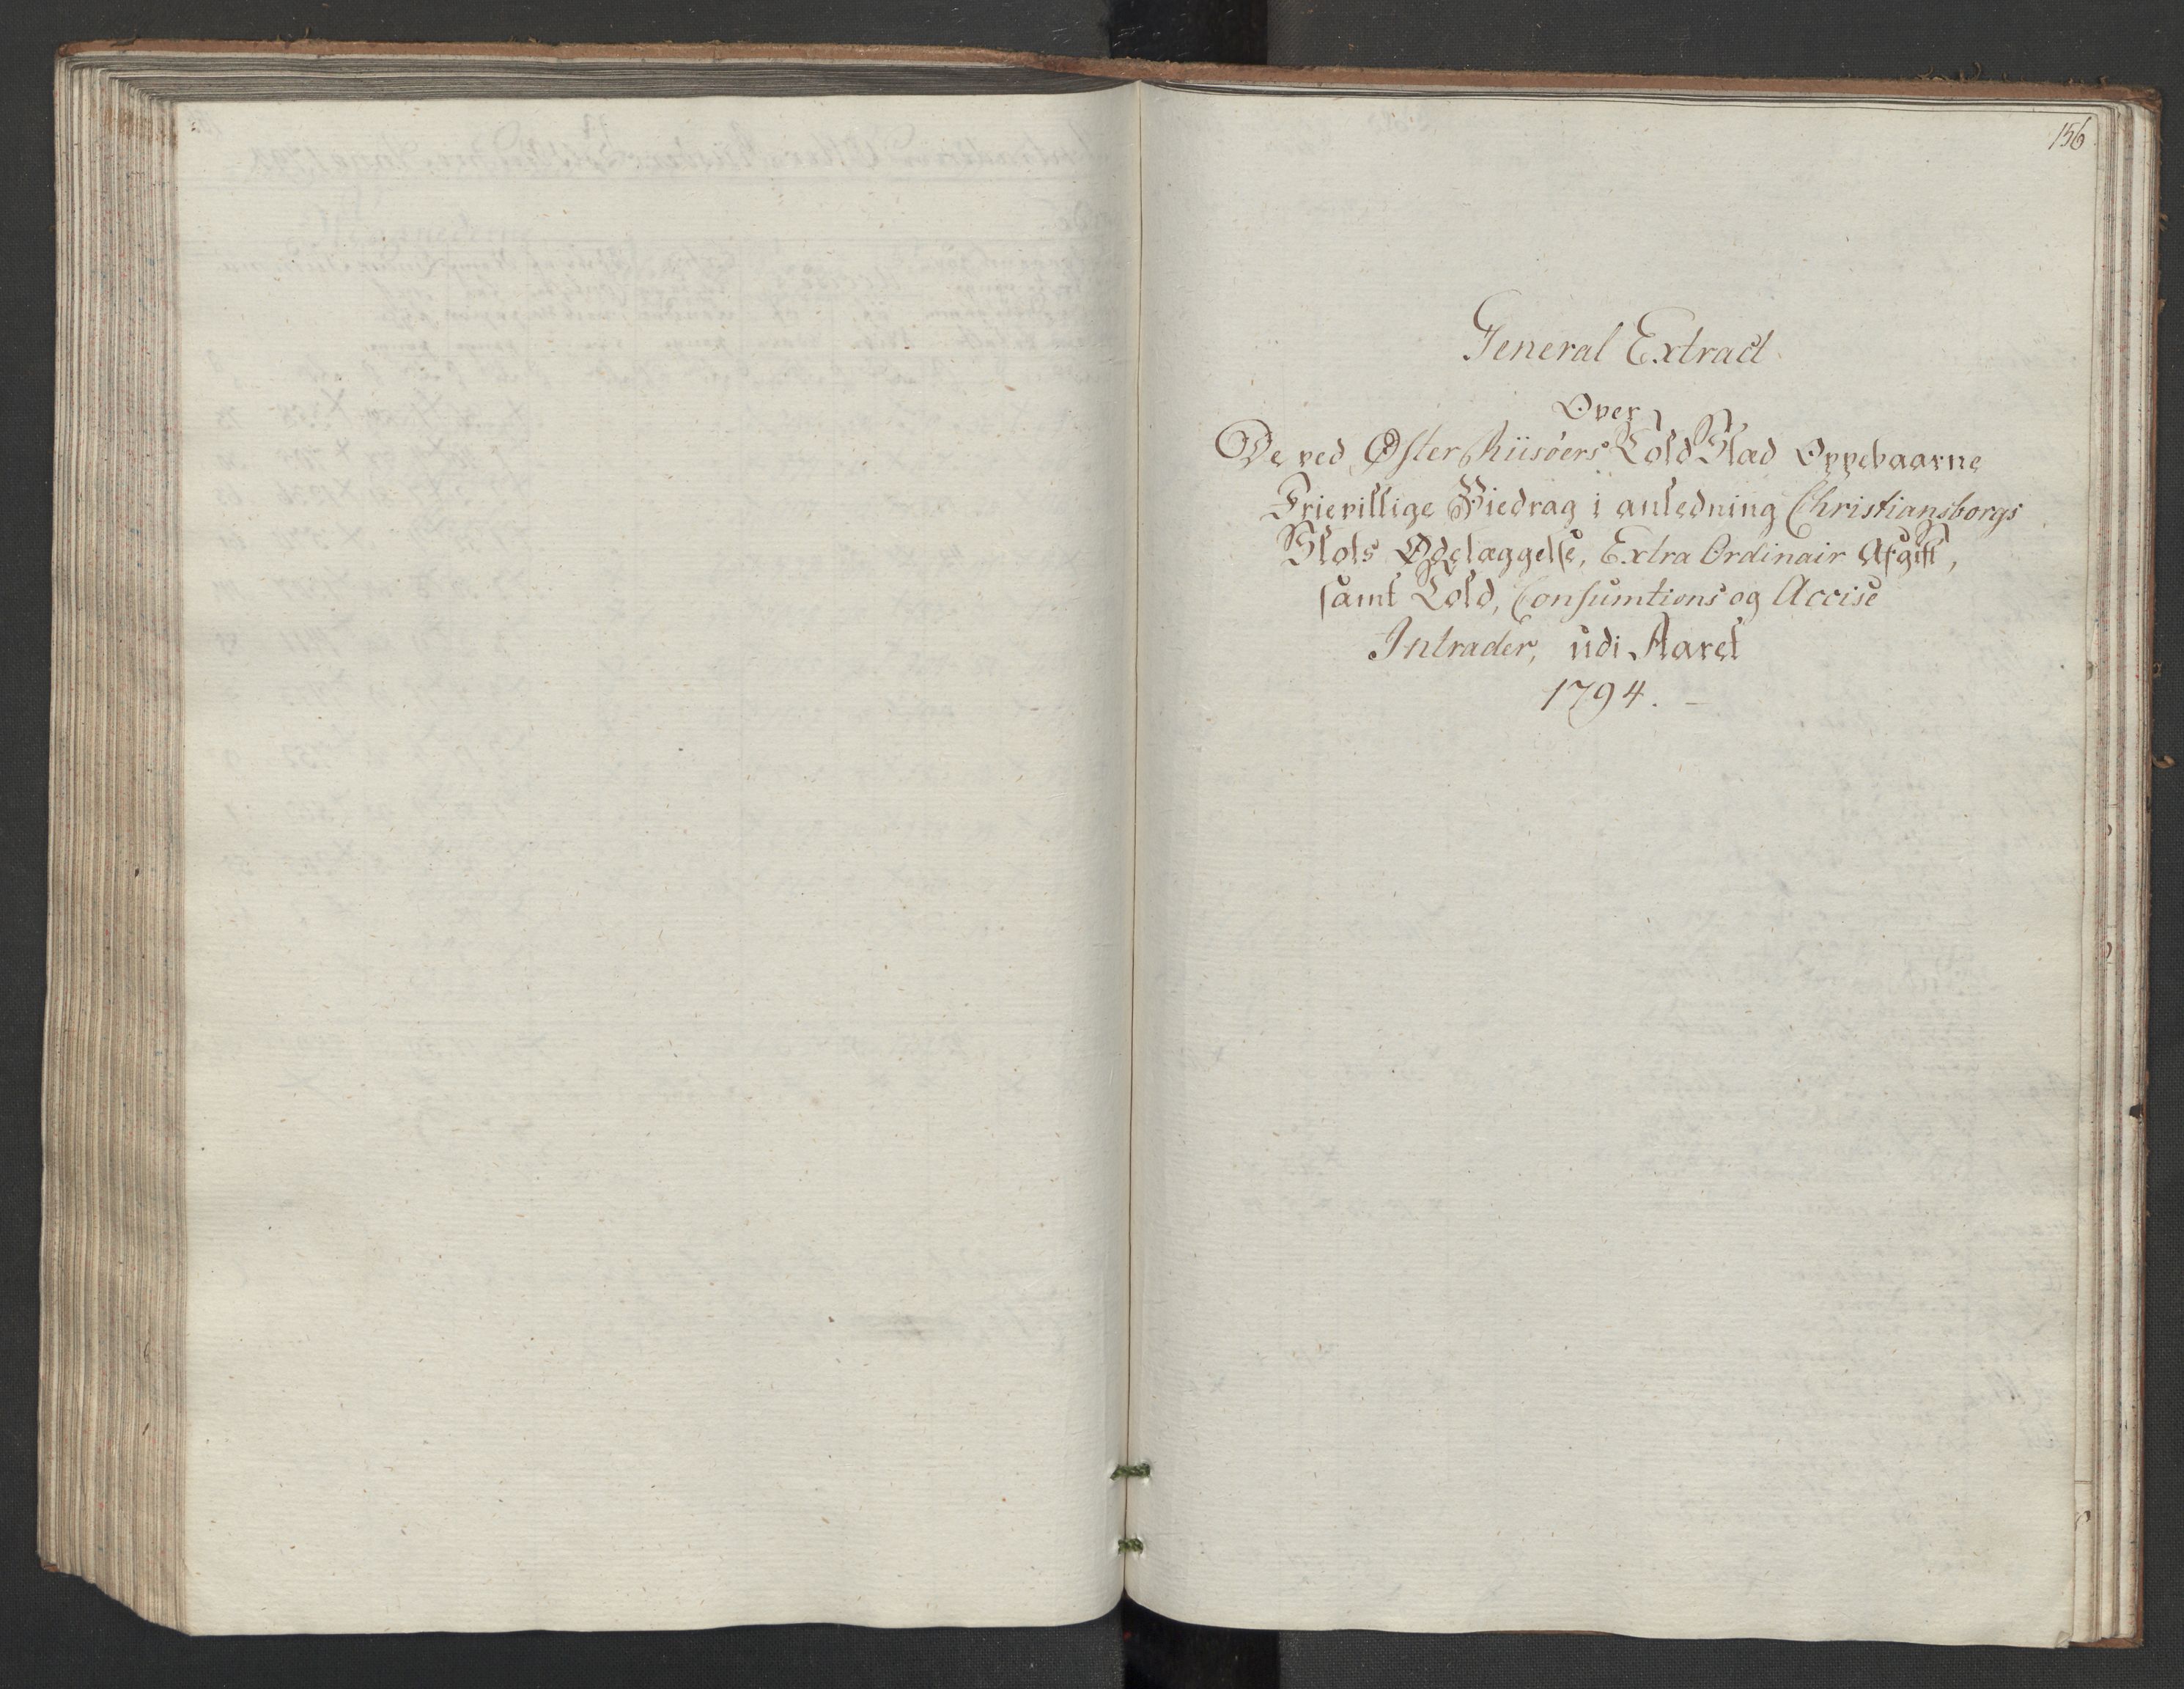 156
General Extract
Over
De ved Øster Riisøers Told Stæd Oppebaarne
Frievillige Biedrag i anledning Christiansborgs
Slots Ødelæggelse, Extra Ordinair Afgift,
samt Told, Consumtions og Accise
Intrader, udi Aaret
1794. –